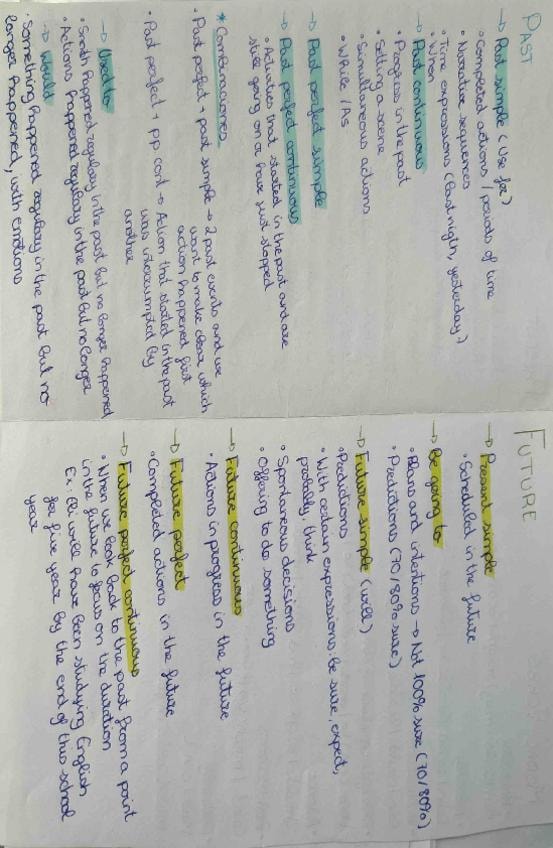 PAST
→ Past simple (Use for)
• Completed actions / periods of time
• Narrative sequences
• Time expressions (last night, yesterday)
• When
→ Past continuous
• Progress in the past
• Setting a scene
• Simultaneous actions
• While / As
→ Past perfect simple
→ Past perfect continuous
• Activities that started in the past and are
still going on or have just stopped
* Combinaciones
• Past perfect + past simple → 2 past events and we
want to make clear which
action happened first
• Past perfect + pp cont → Action that started in the past
was interrumpted by
another
→ Used to
• Smth happened regularly in the past but no longer happened
• Actions happened regularly in the past but no longer
→ Would
• Something happened regularly in the past but no
longer happened, with emotions
FUTURE
→ Present simple
• Scheduled in the future
→ Be going to
• Plans and intentions → Not 100% sure (70/80%)
• Predictions (70/80% sure)
→ Future simple (will)
• Predictions
• With certain expressions, be sure, expect,
probably, think
• Spontaneous decisions
• Offering to do something
→ Future continuous
• Actions in progress in the future
→ Future perfect
• Completed actions in the future
→ Future perfect continuous
• When we look back to the past from a point
in the future to focus on the duration
Ex: will have been studying English
for five year by the end of this school
year